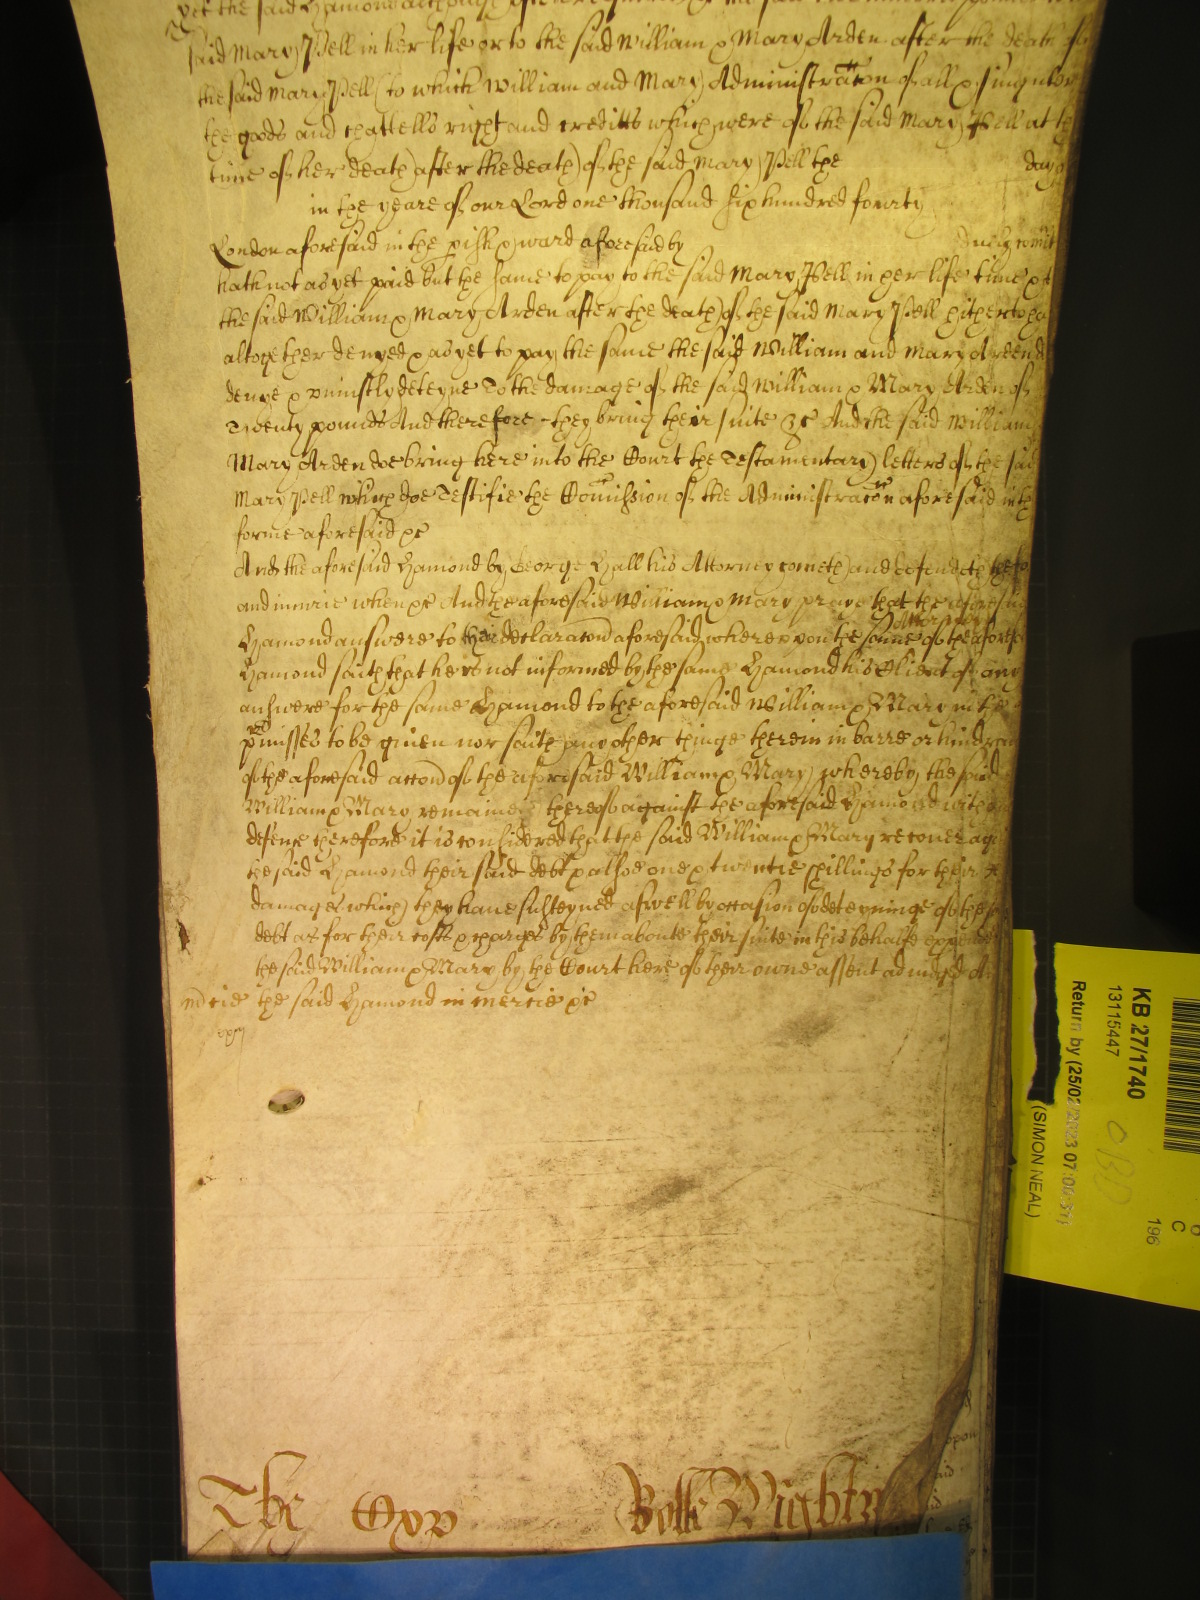 yet the said Hamond although often requested the said
said Mary Pell in her life or to the said William & Mary Arden after the death of
the said Mary Pell (to which William and Mary Administracon of all & singuler
the goods and chattells right and creditts which were of the said Mary Pell at th
time of her death after the death) of the said Mary Pell the day of
in the yeare of our Lord one thousand six hundred fourty
London aforesaid in the pish & ward aforesaid by duely comit
hath not as yet paid but the same to pay to the said Mary Pell in her life time &
the said William & Mary Arden after the death of the said Mary Pell hitherto ha
altogether denyed & as yet to pay the same the said William and Mary Arden d
denye & uniustly deteyne To the damage of the said William & Mary Arden of
Twenty pounds And therefore they bring their suite &c And the said William
Mary Arden doe bring here into the Court the Testamentary letters of the said
Mary Pell which doe Testifie the Comission of the Administracon aforesaid in th
forme aforesaid &c
And the aforesaid Hamond by George Hall his Attorney cometh and defendeth the fo
and iniurie when &c And the aforesaid William & Mary praye that the aforesaid
Attorney
Hamond answere to their declaracon aforesaid whereupon the same of the afores
Hamond saith that he is not informed by the same Hamond his Client of any
answere for the same Hamond to the aforesaid William & Mary in the
pmisses to be giuen nor saith any other thinge therein in barre or hindran
of the aforesaid accon of the aforesaid William & Mary whereby the said
William & Mary remaine thereof against the aforesaid Hamond with
defence therefore it is considered that the said William & Mary recouer aga
the said Hamond their said debt & alsoe one & twentie shillings for their
damages which they haue susteyned aswell by occasion of deteyninge of the s
debt as for their costs & charges by them aboute their suite in this behalfe expended
the said William & Mary by the Court here of their owne assent adiudged An
mcie the said Hamond in mercie &c
The Roll Wightw
KB 27/1740
13115447
Return by (25/02/2023 07:00:31)
(SIMON NEAL)
196
C